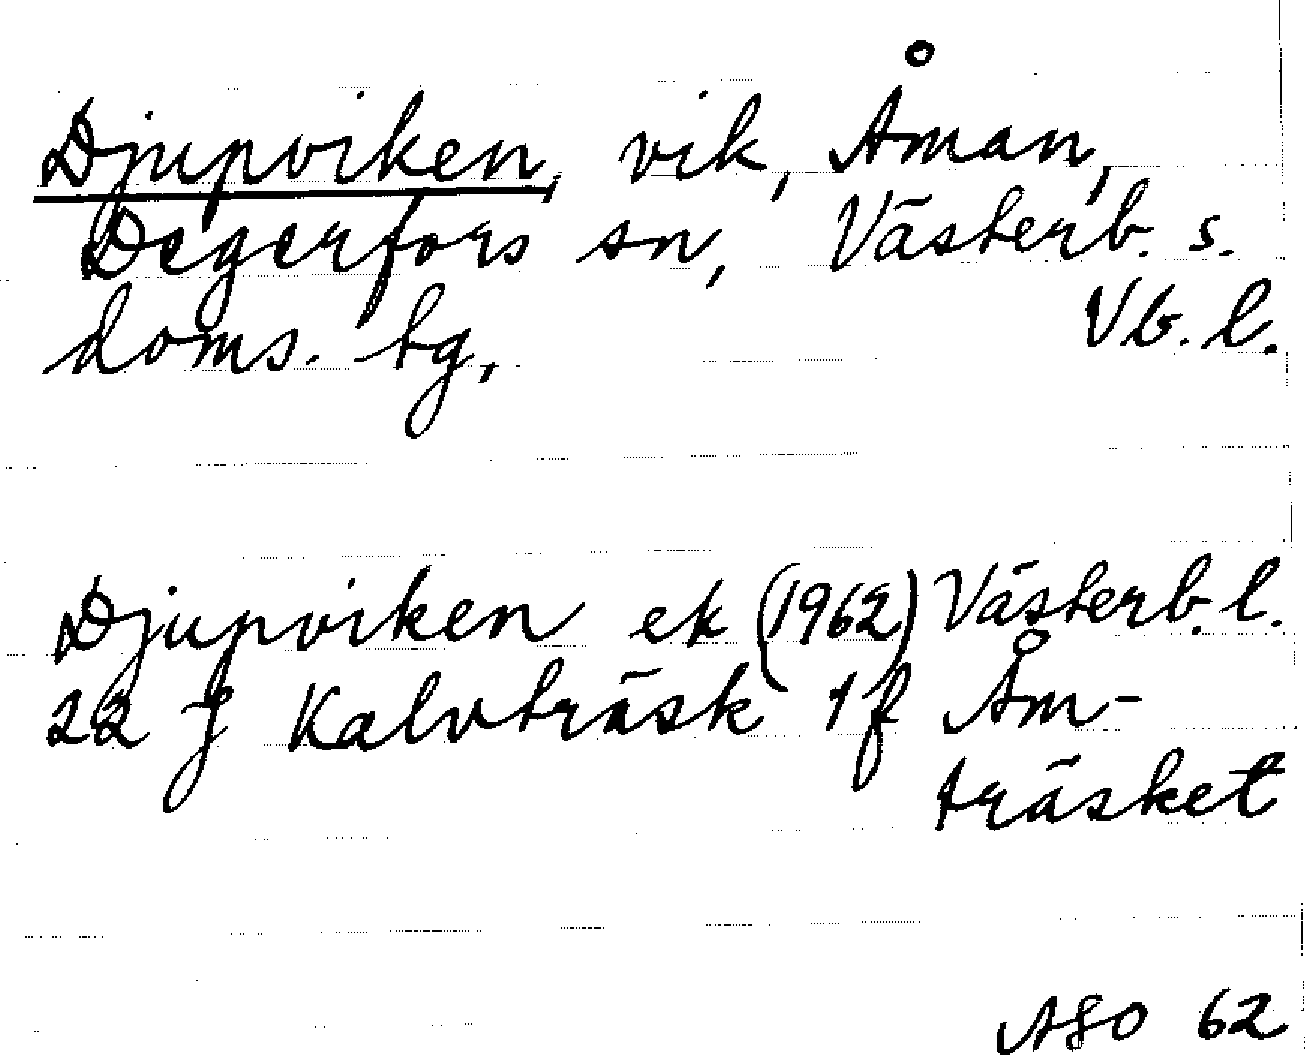 Djupviken, vik, Åman,
Degerfors sn, Västerb. s.
doms. tg, Vb. l.
Djupviken ek (1962) Västerb. l.
22 J Kalvträsk 1 f Åm-
träsket
ASO 62